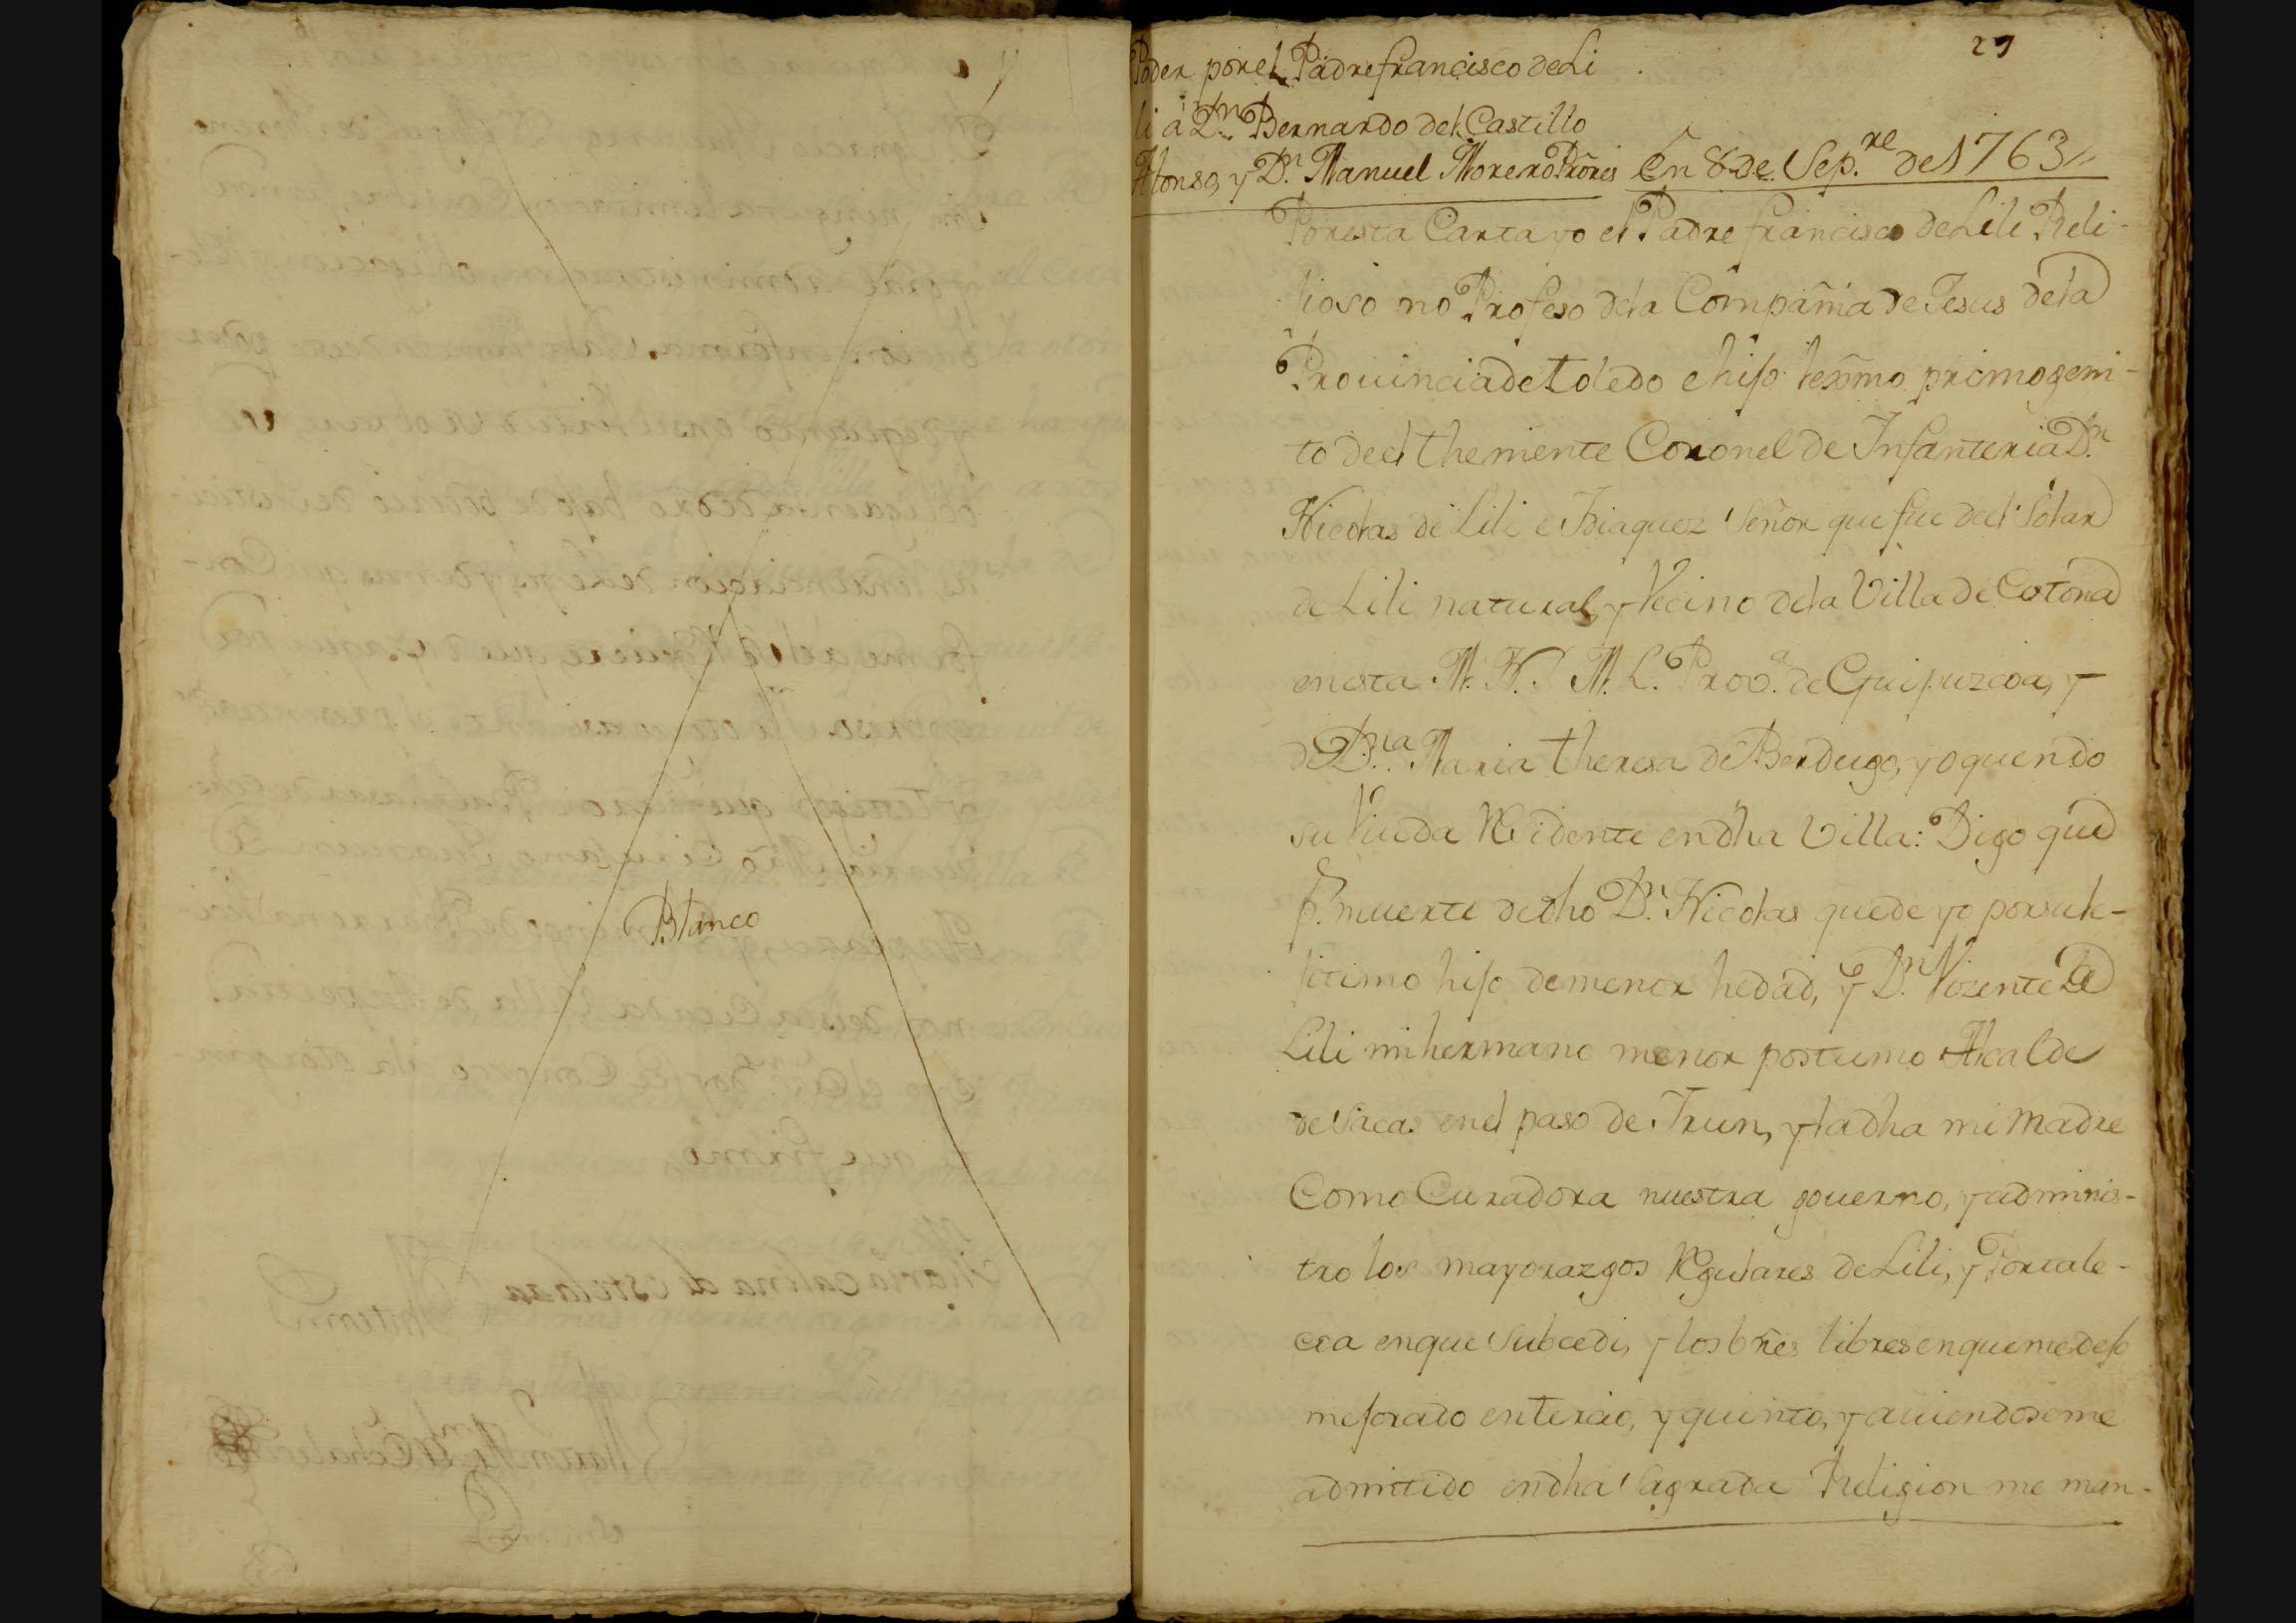 Blanco
29
Poder por el Padre francisco de Li
li â Dn. Bernardo del Castillo
Alonso, y Dn. Manuel Moreno Prôres En 8 de Sep.re de 1763
Por esta Carta yo el Padre francisco de Lili Reli-
jioso no Profeso de la Compañia de Jesus de la
Prouincia de toledo e hijo lexmo primogeni-
to de el theniente Coronel de Infanteria Dn.
Nicolas de Lili e Idiaquez Señor que fue de el Solar
de Lili natural, y Vecino de la Villa de Cestona
en esta M. N. M. L. Prov.a de Guipuzcoa, y
de D.na Maria theresa de Berdugo, yoquendo
su Viuda Residente en dha Villa: Digo que
p.r muerte de dho Dn. Nicolas quede yo por su le-
jitimo hijo de menor hedad, y Dn. Vizente de
Lili mi hermano menor postumo Alcalde
de Sacas en el paso de Irun, y la dha mi Madre
Como Curadora nuestra gouerno, y adminis-
tro los mayorazgos Regulares de Lili, y Portale-
coa en que Subcedi, y los bñes libres en que me dejo
mejorado en tercio, y quinto, y auiendoseme
admitido en dha Sagrada Religion me man-